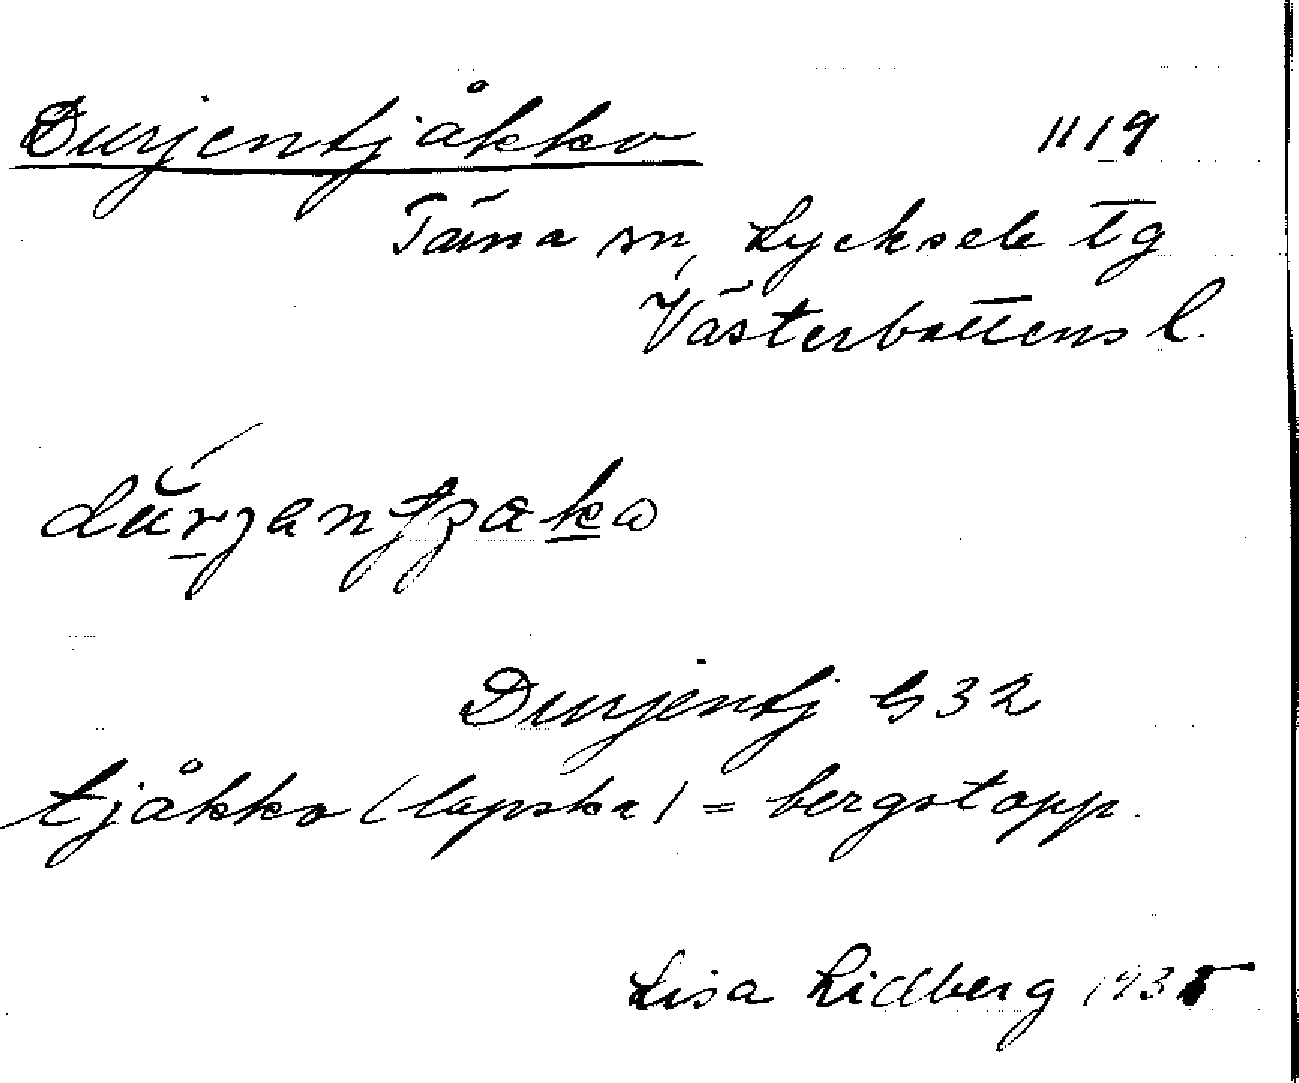 Durjentjåkko 1119
Tärna sn, Lycksele tg
Västerbottens l.
Durjentj G 32
tjåkko (lapska) = bergstopp.
Lisa Lidberg 1935